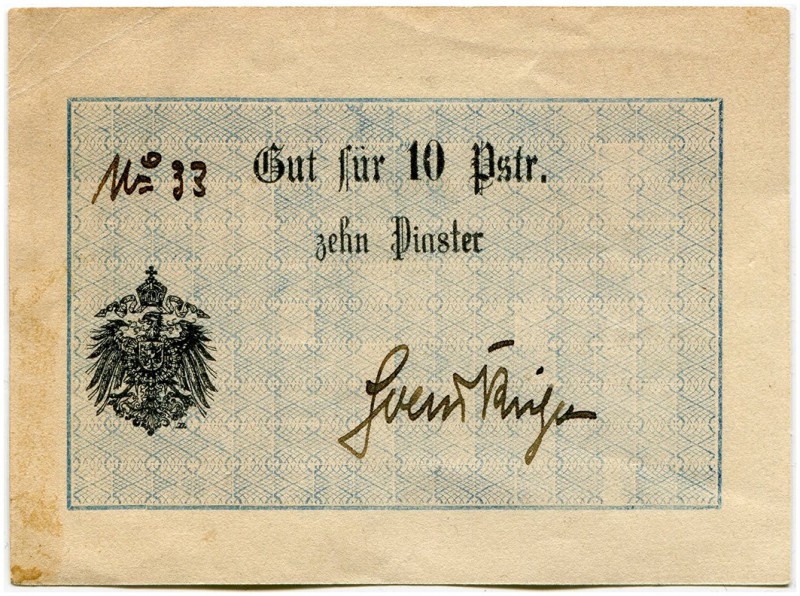 Nº 33
Gut für 10 Pstr.
zehn Piaster